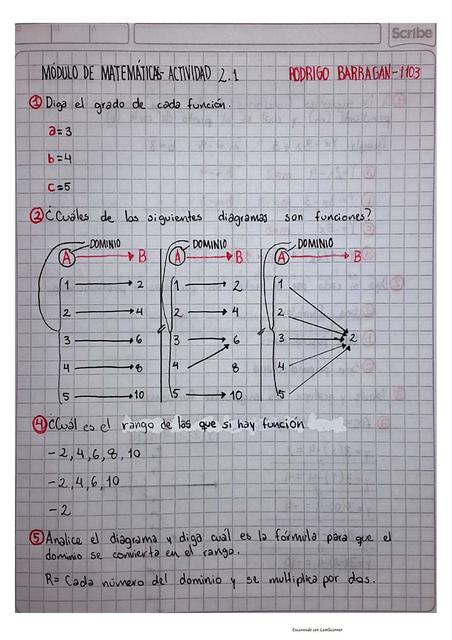 Scribe
MÓDULO DE MATEMÁTICAS- ACTIVIDAD 2.1 RODRIGO BARRAGAN-1103
① Diga el grado de cada función.
a=3
b=4
c=5
② ¿Cuáles de los siguientes diagramas son funciones?
DOMINIO DOMINIO DOMINIO
A B A B A B
1 2 1 2 1
2 4 2 4 2
3 6 3 6 3 2
4 8 4 8 4
5 10 5 10 5
④ ¿Cuál es el rango de las que si hay función
-2,4,6,8,10
-2,4,6,10
-2
⑤ Analice el diagrama y diga cuál es la fórmula para que el
dominio se convierta en el rango.
R= Cada número del dominio y se multiplica por dos.
Escaneado con CamScanner